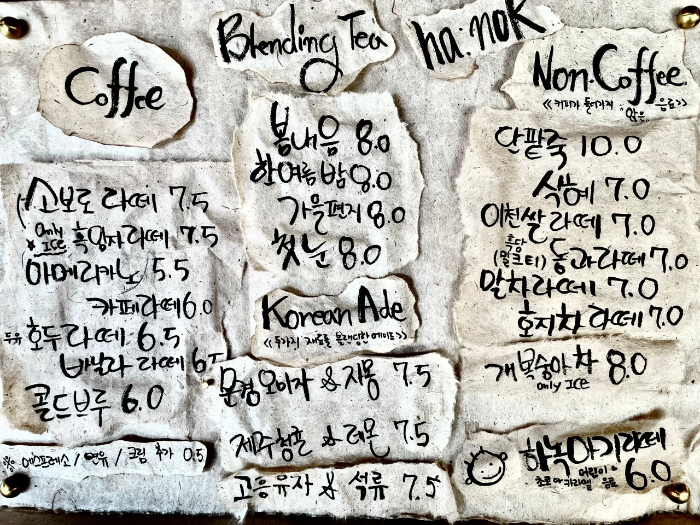 Coffee
소보로 라떼 7.5
only ICE 흑임자라떼 7.5
아메리카노 5.5
카페라떼 6.0
두유 호두라떼 6.5
바닐라 라떼 6.5
콜드브루 6.0
에스프레소 / 연유 / 크림 추가 0.5
Blending Tea
봄내음 8.0
한여름밤 8.0
가을편지 8.0
첫눈 8.0
Korean Ade
<<두가지 재료를 블랜딩한 에이드>>
문경오미자 & 자몽 7.5
제주청귤 & 레몬 7.5
고흥유자 & 석류 7.5
ha:nok
Non-Coffee
<<커피가 들어가지 않은 음료>>
단팥죽 10.0
식혜 7.0
이천쌀라떼 7.0
흑당
(밀크티) 동과라떼 7.0
말차라떼 7.0
호지차 라떼 7.0
개복숭아차 8.0
only ICE
하녹아기라떼
어린이 음료
초코 or 카라멜
6.0